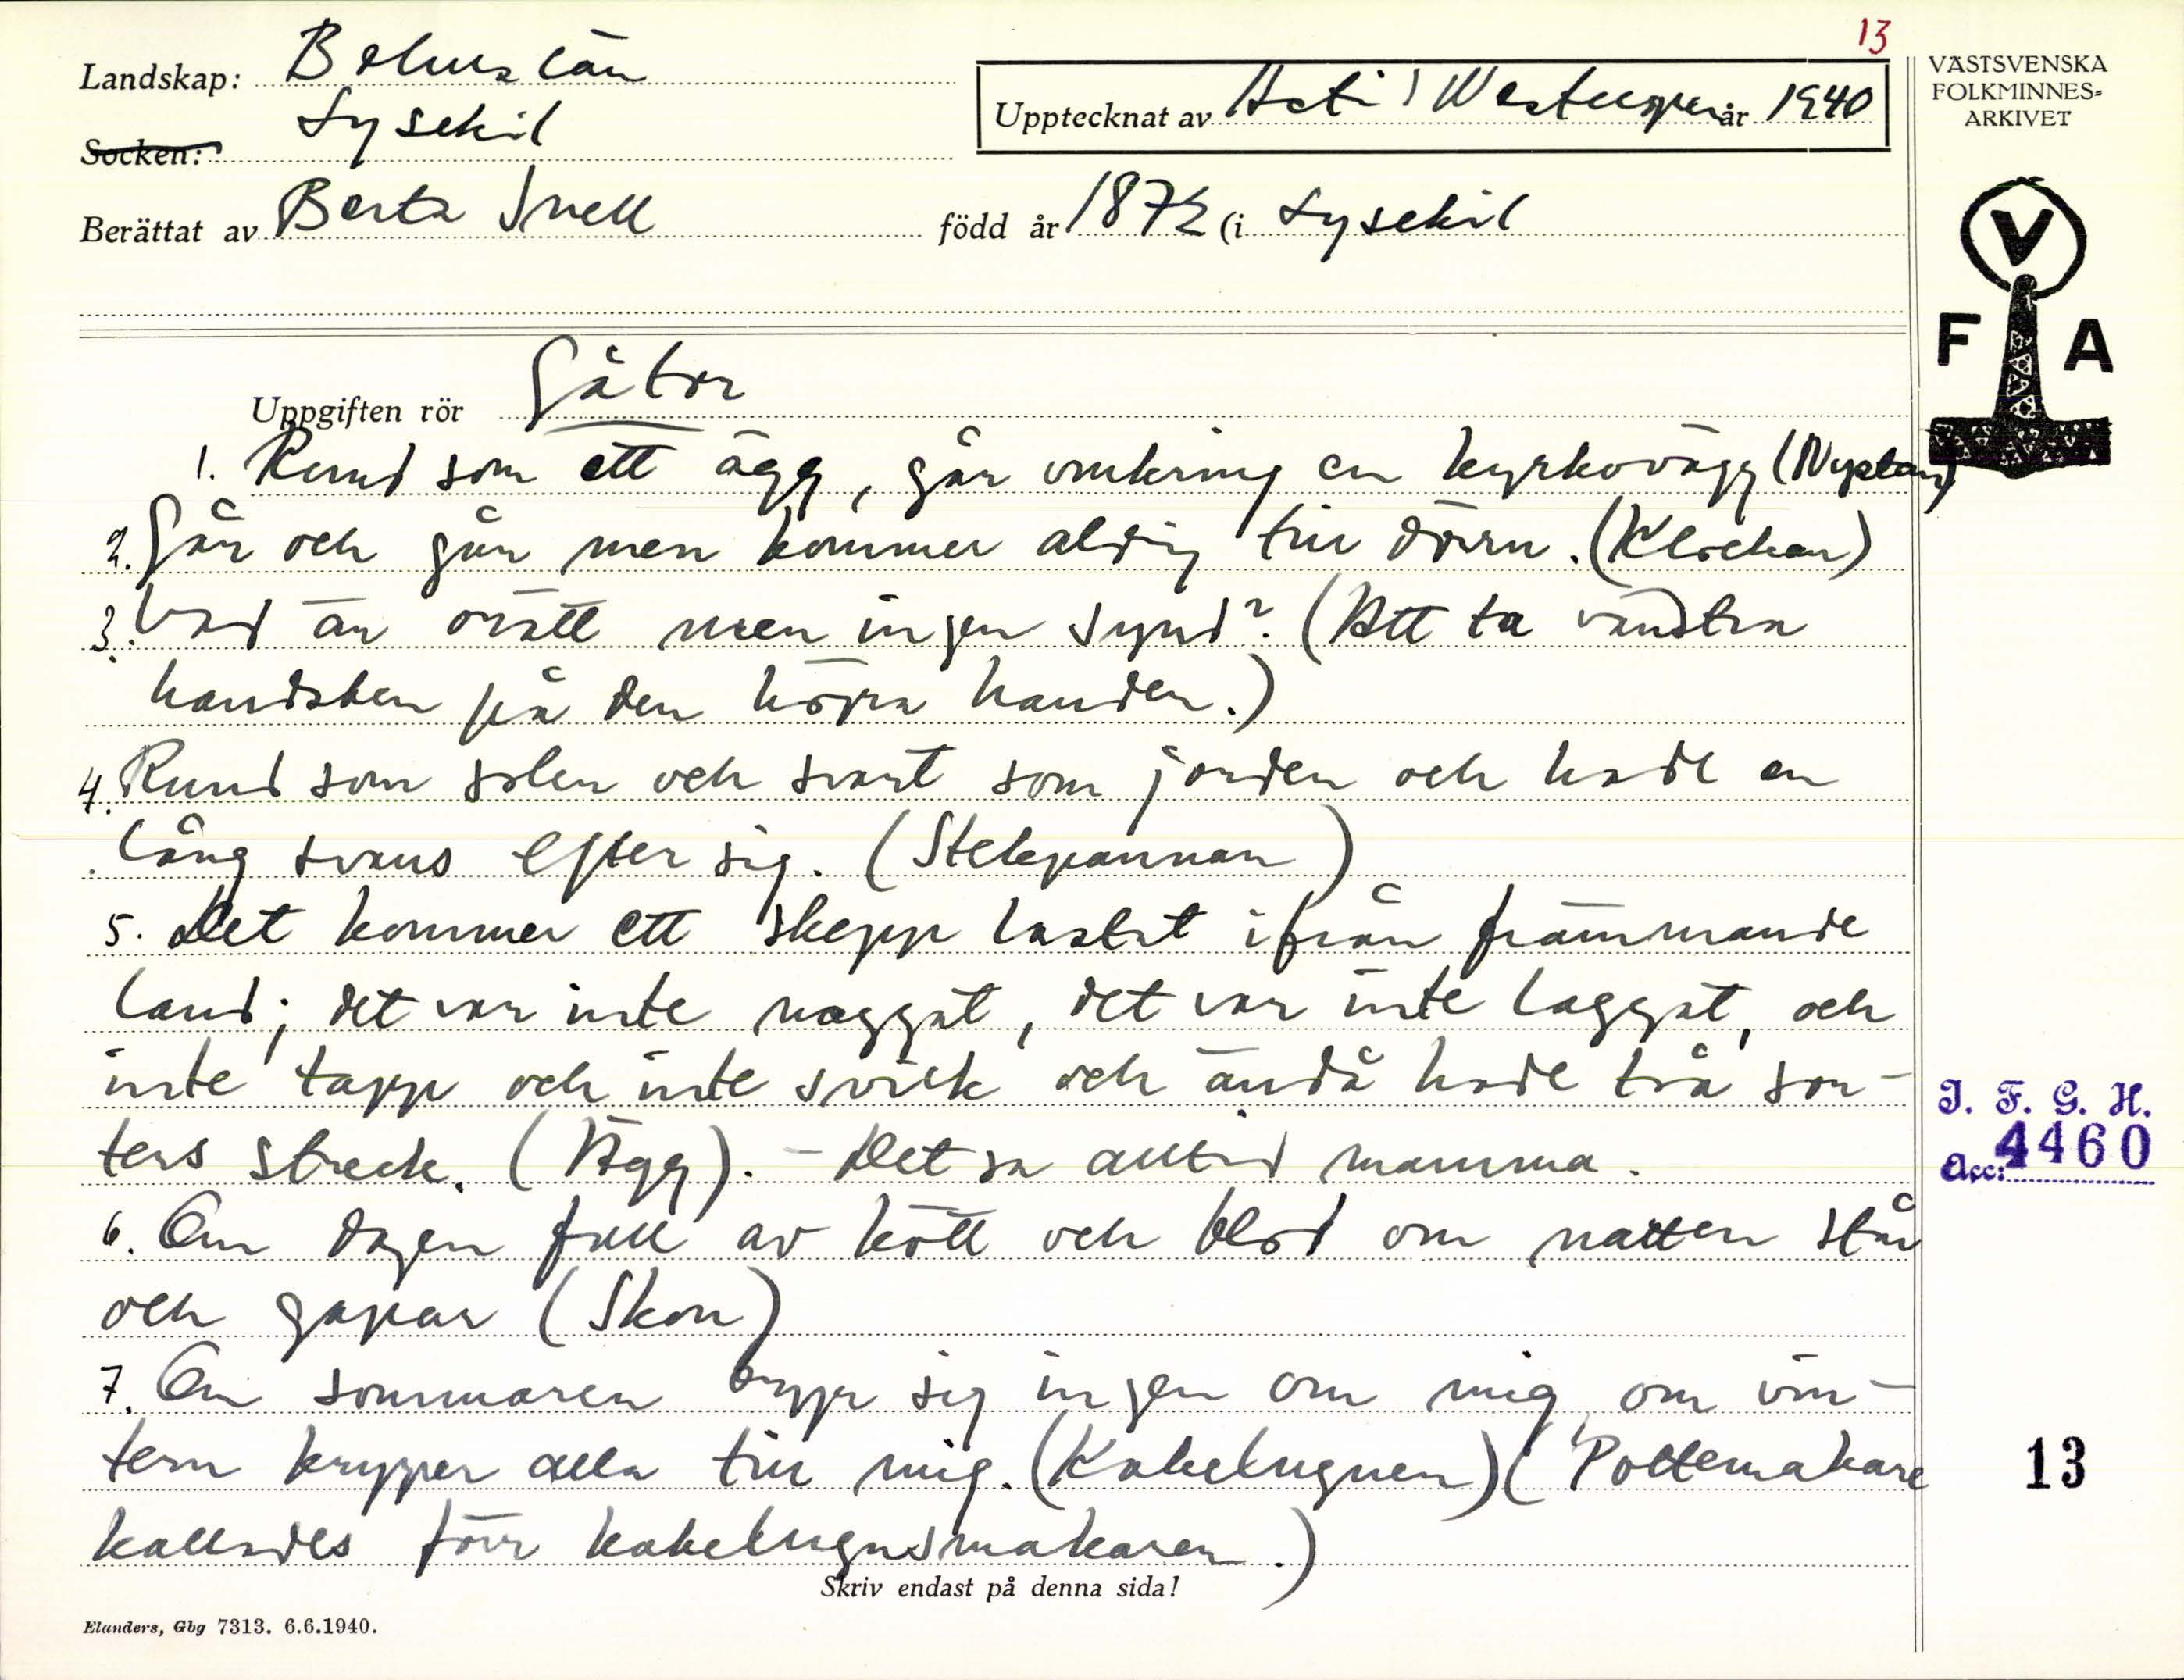 13
Landskap: Bohuslän
Socken: Lysekil
Upptecknat av Westergren år 1940
VÄSTSVENSKA
FOLKMINNES-
ARKIVET
Berättat av Berta Snell född år 1872 (i Lysekil
V
F A
Uppgiften rör Gåtor
1. Rund som ett ägg, går omkring en kyrkovägg (Nystan)
2. Går och går men kommer aldrig till dörrn. (Klockan)
3. Vad är orätt men ingen synd? (Att ta vänstra
handsken på den högra handen.)
4. Rund som solen och svart som jorden och hade en
lång svans efter sig. (Stekpannan)
5. Det kommer ett skepp lastat ifrån främmande
land; det var inte naggat, det var inte laggat, och
inte tapp och inte svick och ändå hade två sor-
ters streck. (Ägg). - Det sa alltid mamma.
6. Om dagen full av kött och blod om natten står
och gapar (Skon)
7. Om sommaren bryr sig ingen om mig, om vin-
tern kryper alla till mig. (Kakelugnen) (Pottemakare
kallades förr kakelugnsmakaren.)
Skriv endast på denna sida!
Elanders, Gbg 7313. 6.6.1940.
I. F. G. H.
Acc: 4460
13